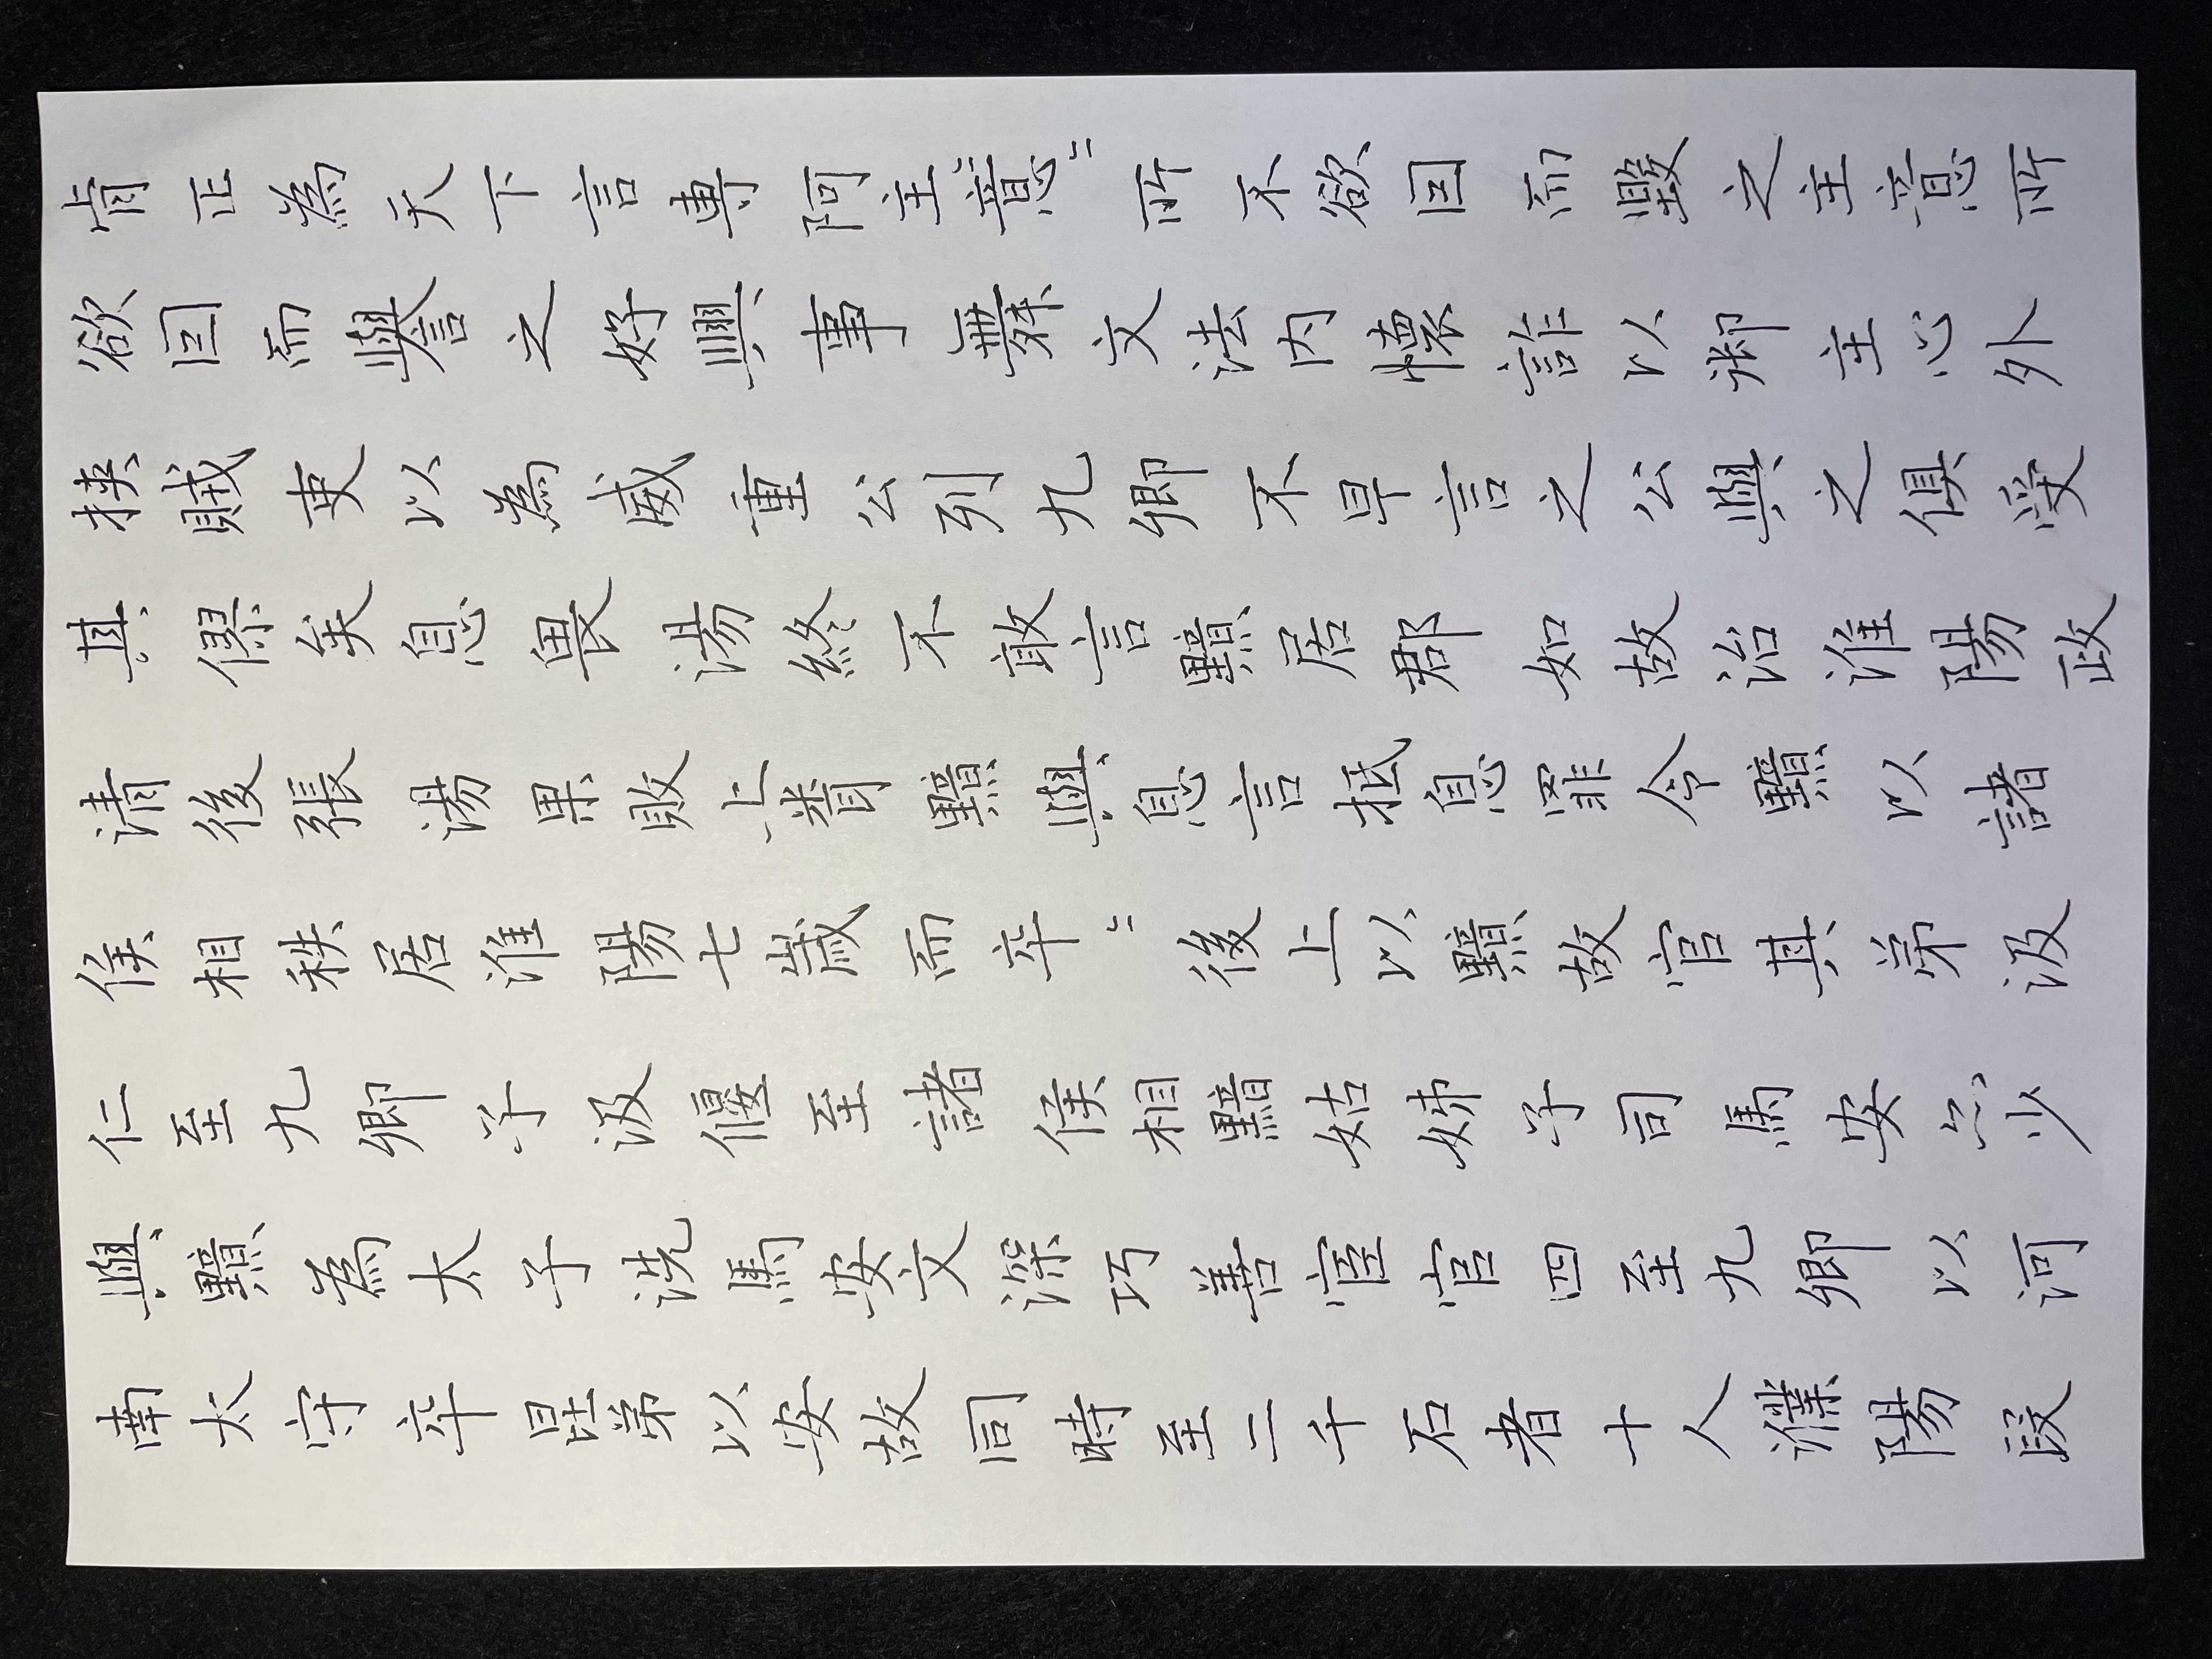 肯正為天下言專阿主〻意〻所不欲因而毀之主意所
欲因而譽之好興事舞文法内懷詐以御主心外
挾賊吏以為威重公列九卿不早言之公與之俱受
其僇矣息畏湯終不敢言黯居郡如故治淮陽政
清後張湯果敗上聞黯與息言抵息罪令黯以諸
侯相秩居淮陽七歲而卒〻後上以黯故官其弟汲
仁至九卿子汲偃至諸侯相黯姑姊子司馬安亦少
與黯為太子洗馬安文深巧善宦官四至九卿以河
南太守卒昆弟以安故同時至二千石者十人濮陽段